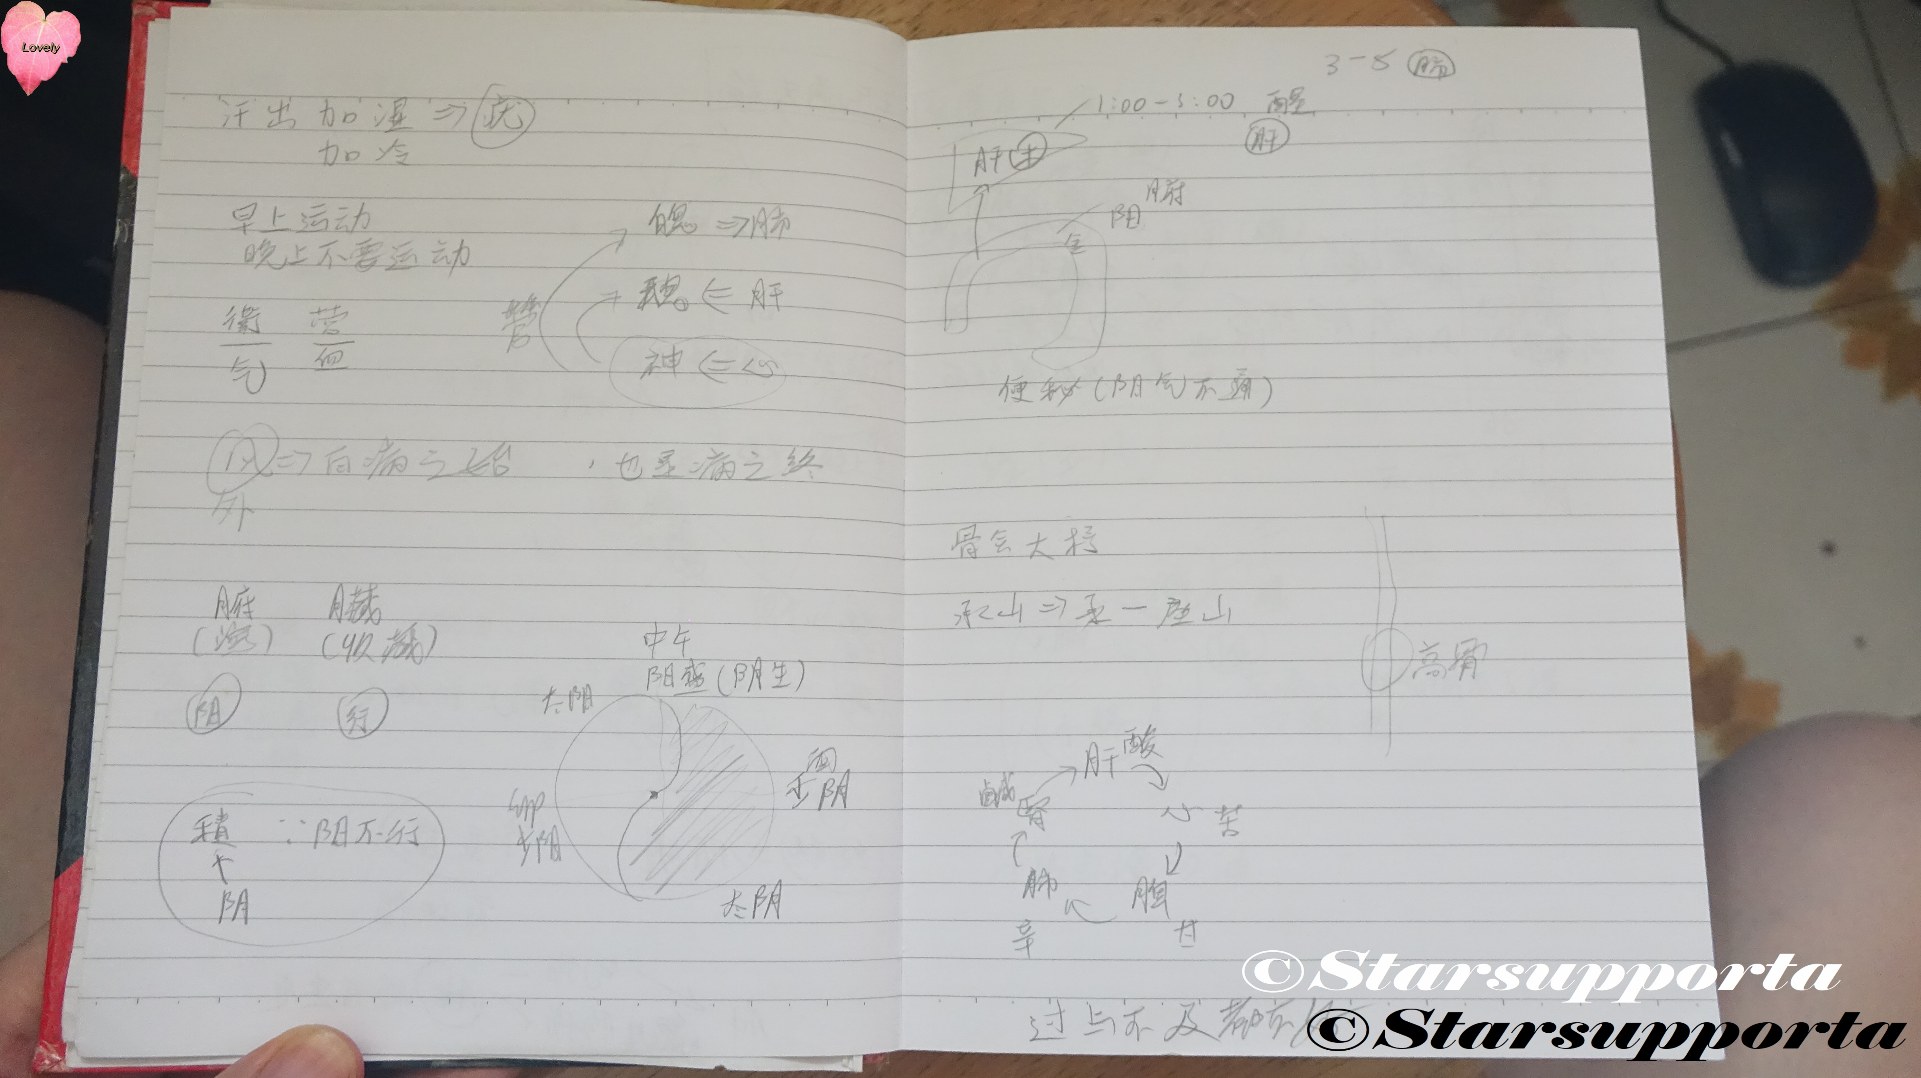 Lovely
汗出 加湿 ⇒
加冷
早上运动
晚上不要运动
⇒肺
⇐ 肝
神 ⇐ 心
衛 营
气 血
⇒百病之始 ，也是病之终
外
腑 臟
(收藏)
阴 行
中午
阳盛 (阴生)
太阳
少阳
太阴
積 ∵ 阴不行
阴
3-5 肺
1:00-3:00 醒
肝
肝
腑
便秘 (阴气不通)
骨会大杼
承山 ⇒ 承一座山
高骨
肝 酸
鹹 腎
心 苦
肺
辛
甘
过与不及都
©Starsupporta
©Starsupporta